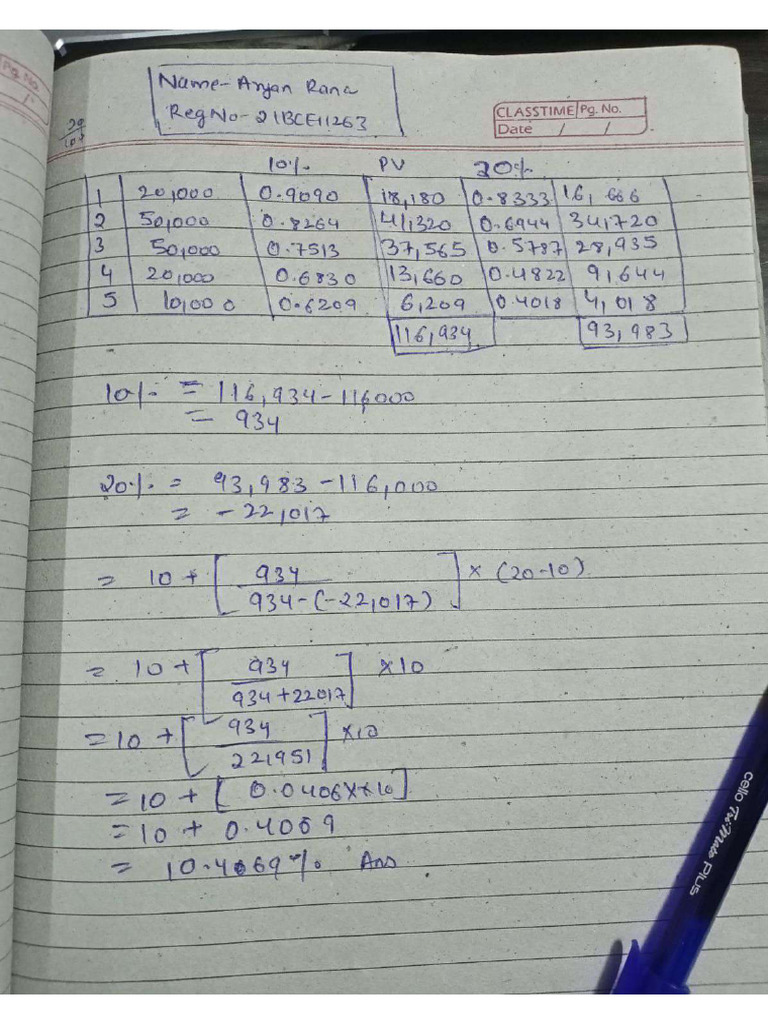 Pg. No.
Name- Aryan Rana
Reg No- 21BCE11263
CLASSTIME Pg. No.
Date / /
10% PV 20%
1 20,000 0.9090 18,180 0.8333 16,666
2 50,000 0.8264 41,320 0.6944 34,720
3 50,000 0.7513 37,565 0.5787 28,935
4 20,000 0.6830 13,660 0.4822 9,644
5 10,000 0.6209 6,209 0.4018 4,018
116,934 93,983
10% = 116,934-116000
= 934
20% = 93,983-116,000
= -22,017
= 10 + [ 934 / 934-(-22,017) ] × (20-10)
= 10 + [ 934 / 934+22017 ] ×10
= 10 + [ 934 / 22,951 ] ×10
= 10 + [ 0.0406××10 ]
= 10 + 0.4069
= 10.4069% Ans
cello TriMate Plus